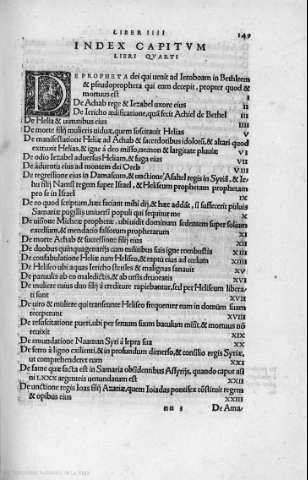 LIBER IIII 149
INDEX CAPITVM
LIBRI QVARTI
DE PROPHETA dei qui uenit ad Ieroboam in Bethleem
& pseudopropheta qui eum decepit, propter quod &
mortuus est I
De Achab rege & Iezabel uxore eius II
De Iericho ædificatione, quā fecit Achiel de Bethel III
De Helia & uirtutibus eius IIII
De morte filij mulieris uiduæ, quem suscitauit Helias V
De manifestatione Heliæ ad Achab & sacerdotibus idoloru, & altari quod
extruxit Helias, & igne à deo misso, & largitate pluuiæ VI
De odio Iezabel aduersus Heliam, & fuga eius VII
De aduentu eius ad montem dei Oreb VIII
De regressione eius in Damascum, & unctione Asahel regis in Syriā, & Ie
hu filij Namsi regem super Israel, & Heliseum prophetam prophetam
pro se in Israel IX
De eo quod scriptum, hæc faciant mihi dij, & hæc addāt, si suffecerit puluis
Samariæ pugillis uniuersi populi qui sequitur me X
De uisione Micheæ prophetæ, ubi uidit dominum sedentem super solium
excelsum, & mendacio falsorum prophetarum XI
De morte Achab & successione filij eius XII
De duobus quinquagenarijs cum militibus suis igne combustis XIII
De confabulatione Heliæ cum Heliseo, & raptu eius ad cœlum XIIII
De Heliseo ubi aquas Iericho steriles & malignas sanauit XV
De paruulis ab eo maledictis, & ab ursis deuoratis XVI
De muliere cuius duo filij à creditore rapiebantur, sed per Heliseum libera
ti sunt XVII
De uiro & muliere qui transeunte Heliseo frequenter eum in domum suam
receperunt XVIII
De resuscitatione pueri, ubi per seruum suum baculum misit, & mortuus nō
reuixit XIX
De emundatione Naaman Syri à lepra sua XX
De ferro à ligno exilienti, & in profundum dimerso, & consilio regis Syriæ,
ut comprehenderet eam XXI
De fame quæ facta est in Samaria obsidentibus Assyrijs, quando caput asi
ni LXXX argenteis uenundatum est XXII
De unctione regis Ioas filij Azariæ, quem Ioiada pontifex cōstituit regem
& opibus eius XXIII
De Ama/